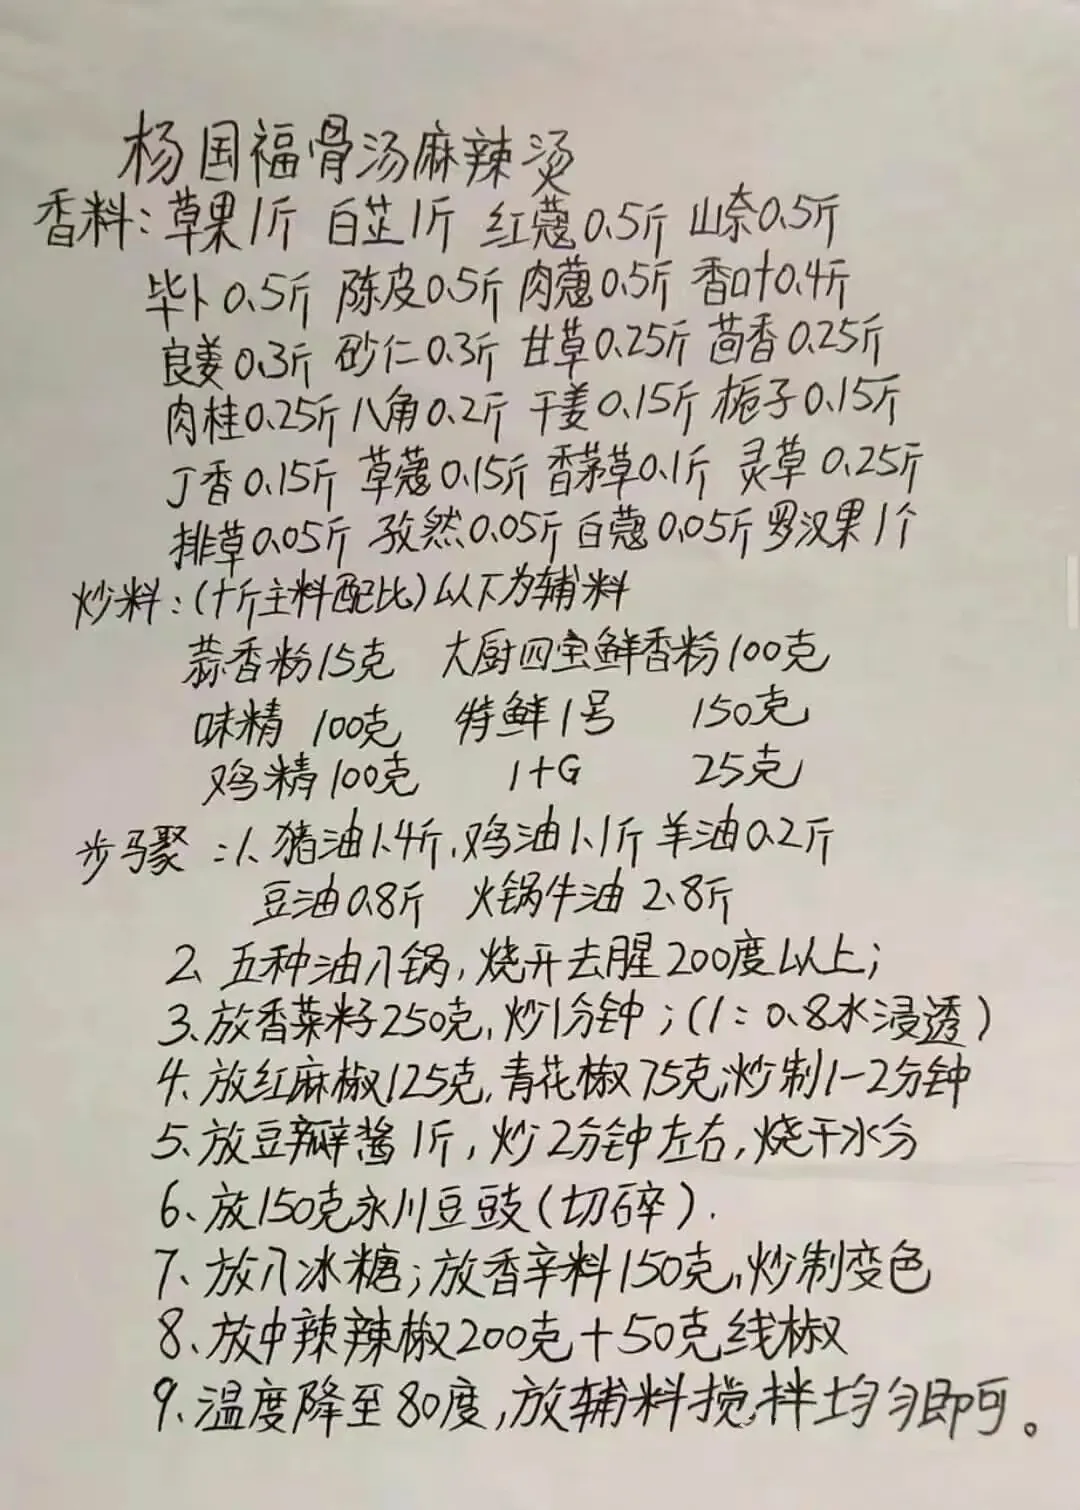 杨国福骨汤麻辣烫
香料:草果1斤 白芷1斤 红蔻0.5斤 山奈0.5斤
毕卜0.5斤 陈皮0.5斤 肉蔻0.5斤 香叶0.4斤
良姜0.3斤 砂仁0.3斤 甘草0.25斤 茴香0.25斤
肉桂0.25斤 八角0.2斤 干姜0.15斤 栀子0.15斤
丁香0.15斤 草蔻0.15斤 香茅草0.1斤 灵草0.25斤
排草0.05斤 孜然0.05斤 白蔻0.05斤 罗汉果1个
炒料:(十斤主料配比)以下为辅料
蒜香粉15克 大厨四宝鲜香粉100克
味精 100克 特鲜1号 150克
鸡精100克 1+G 25克
步骤:1、猪油1.4斤,鸡油1.1斤 羊油0.2斤
豆油0.8斤 火锅牛油2.8斤
2、五种油入锅,烧开去腥200度以上;
3、放香菜籽250克,炒1分钟;(1:0.8水浸透)
4、放红麻椒125克,青花椒75克,炒制1-2分钟
5、放豆瓣酱1斤,炒2分钟左右,烧干水分
6、放150克永川豆豉(切碎).
7、放入冰糖;放香辛料150克,炒制变色
8、放中辣辣椒200克+50克线椒
9、温度降至80度,放辅料搅拌均匀即可。